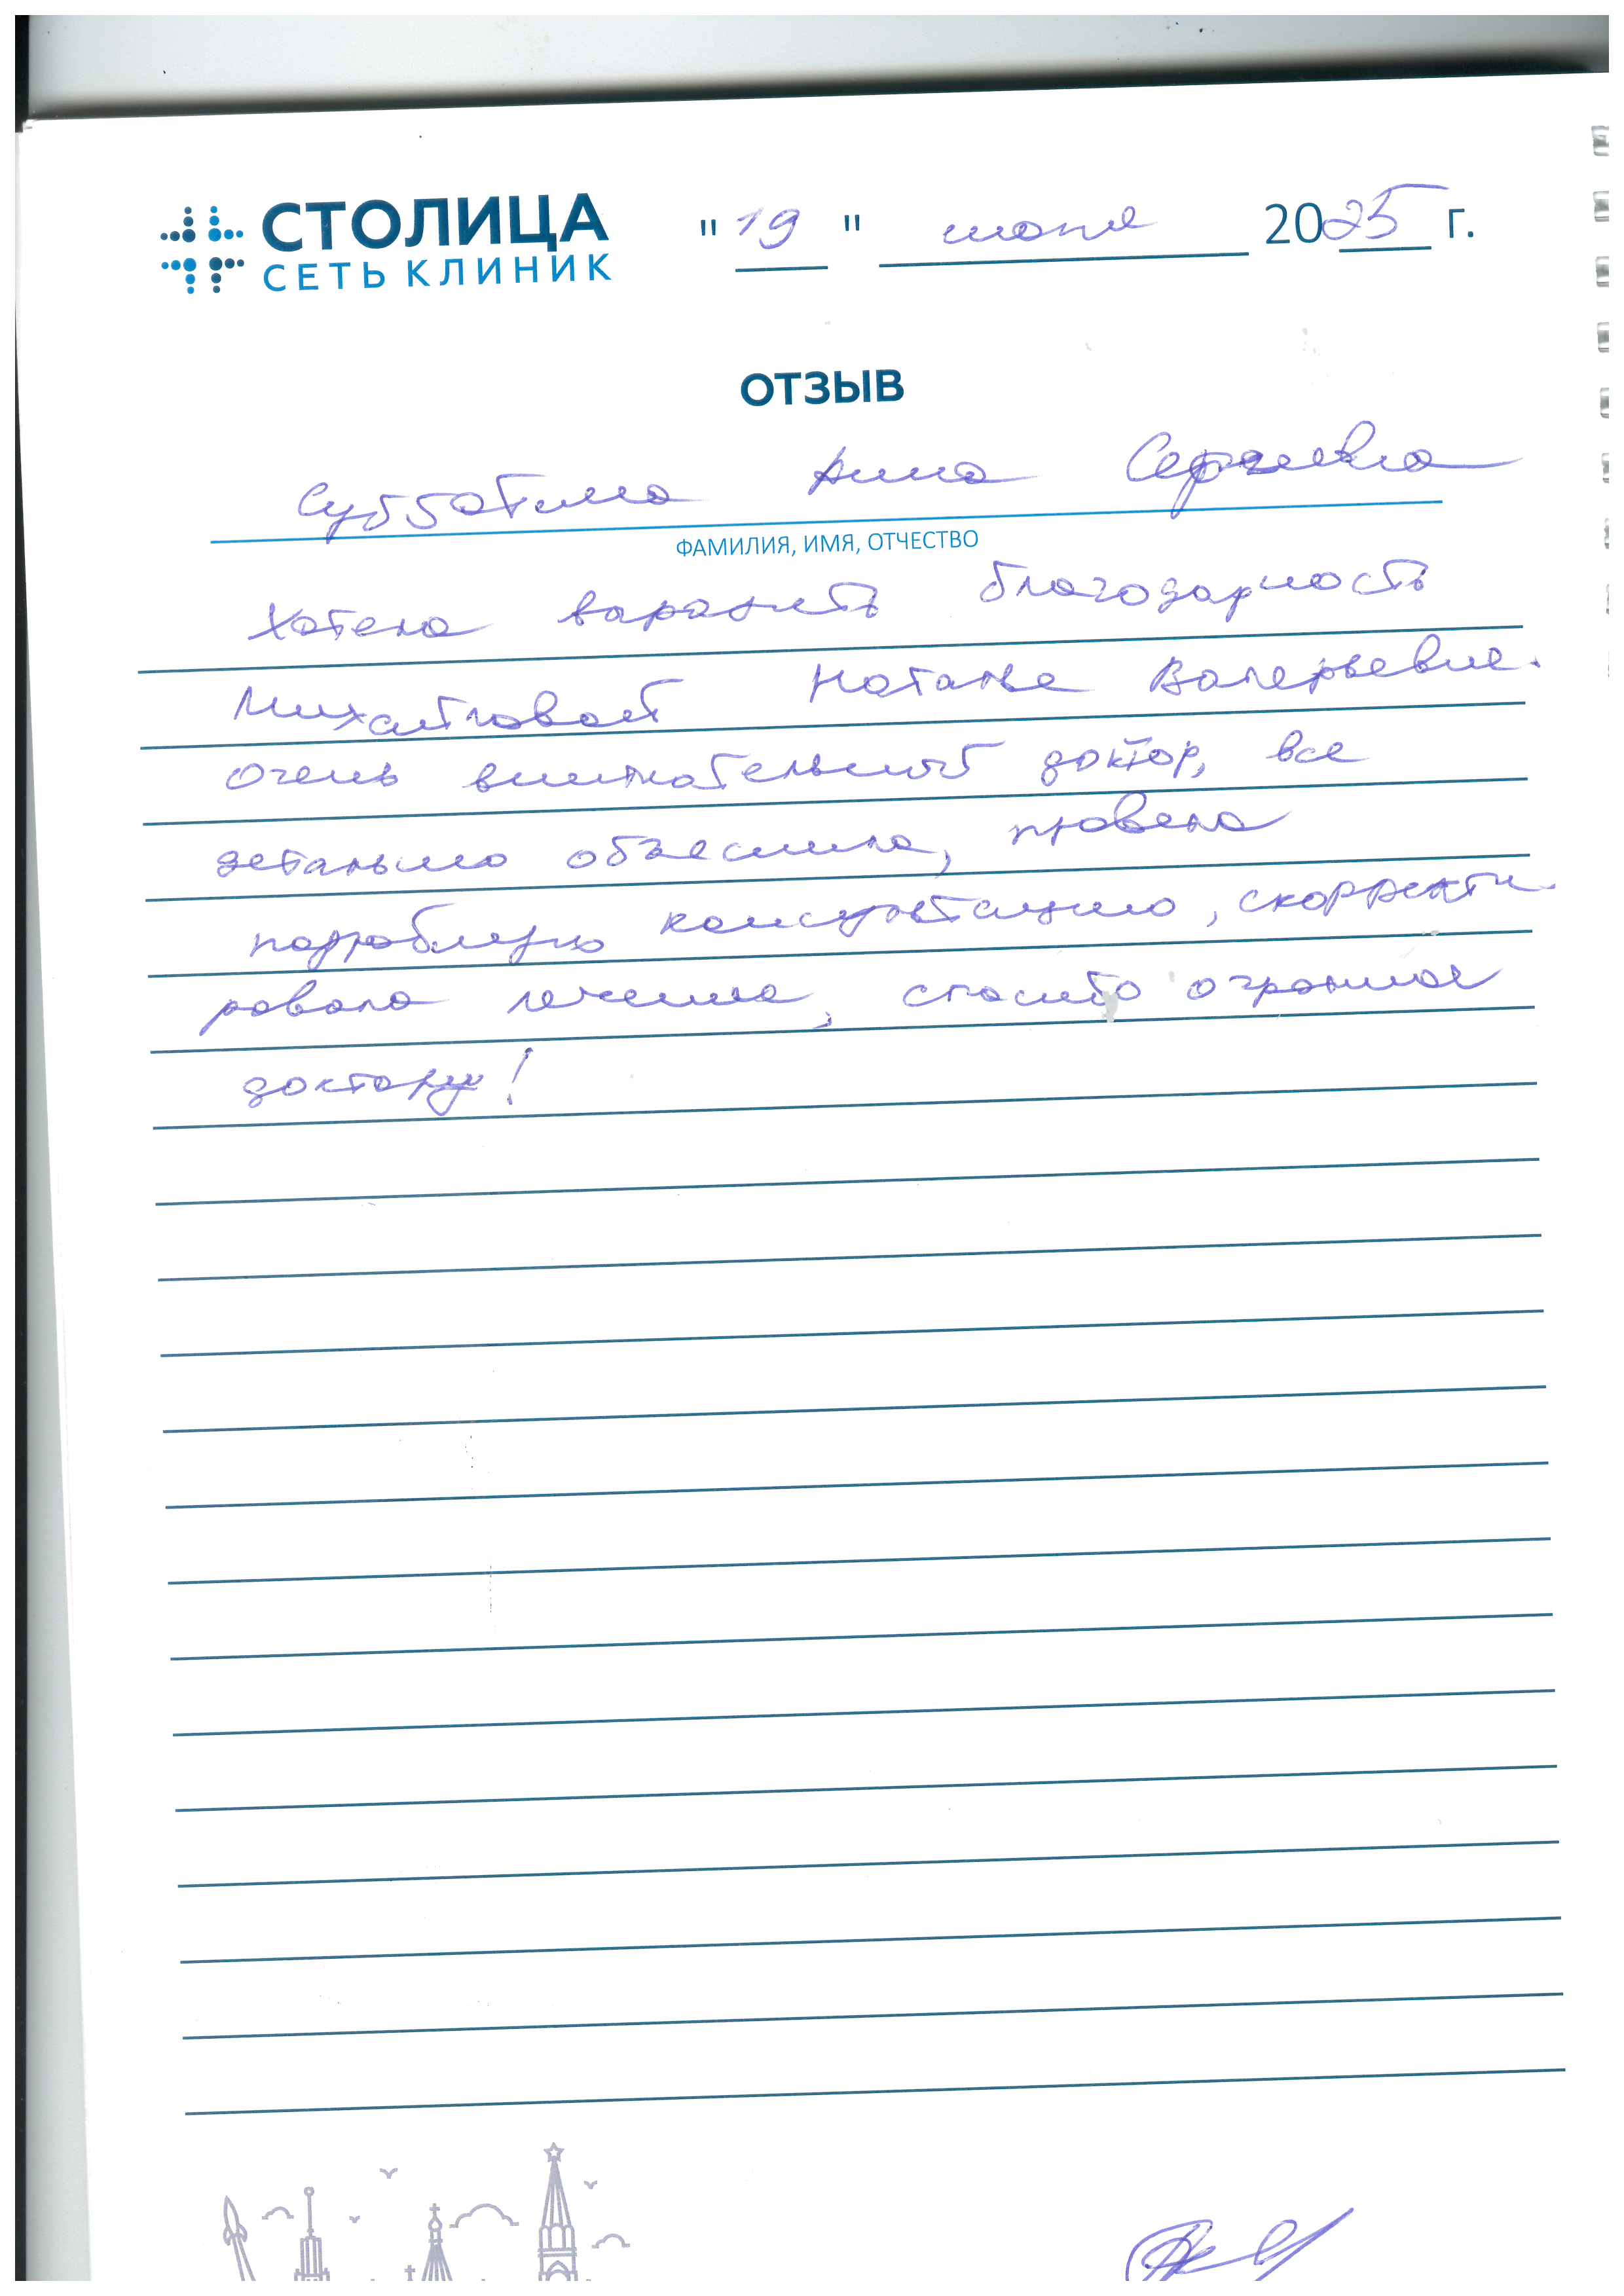 СТОЛИЦА
СЕТЬ КЛИНИК
"19" июня 2025 г.
ОТЗЫВ
Субботина Анна Сергеевна
ФАМИЛИЯ, ИМЯ, ОТЧЕСТВО
Хотела выразить благодарность
Михайловой Наталье Валерьевне.
Очень внимательный доктор, все
детально объяснила, провела
подробную консультацию, скорректи-
ровала лечение, спасибо огромное
доктору!